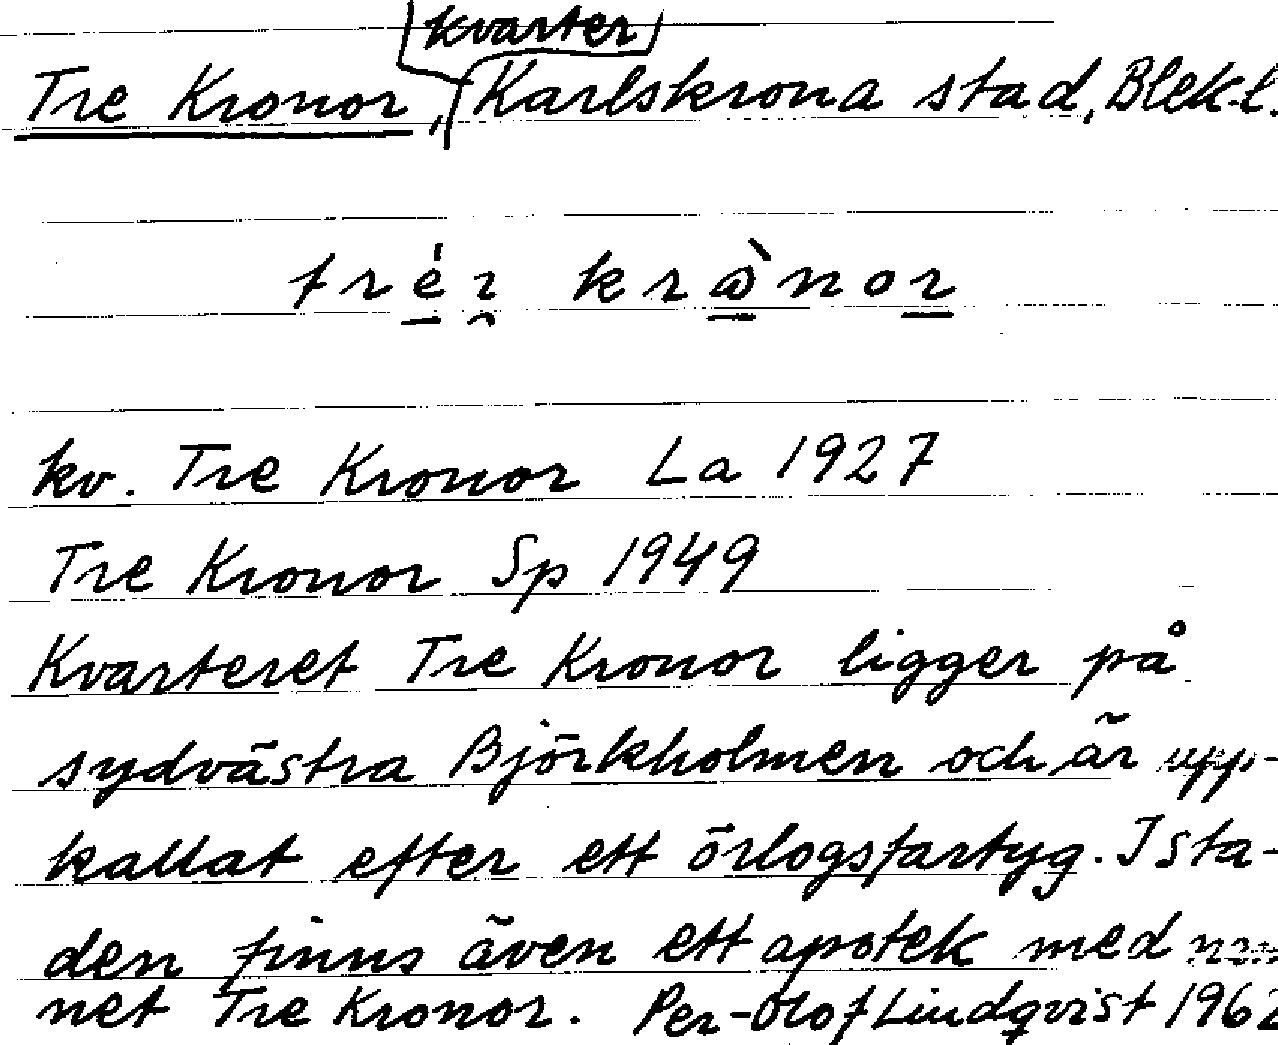 kvarter
Tre Kronor, Karlskrona stad, Blek.l.
tréi krànor
kv. Tre Kronor La 1927
Tre Kronor Sp 1949
Kvarteret Tre Kronor ligger på
sydvästra Björkholmen och är upp-
kallat efter ett örlogsfartyg. I sta-
den finns även ett apotek med nam
net Tre Kronor. Per-Olof Lindqvist 1962